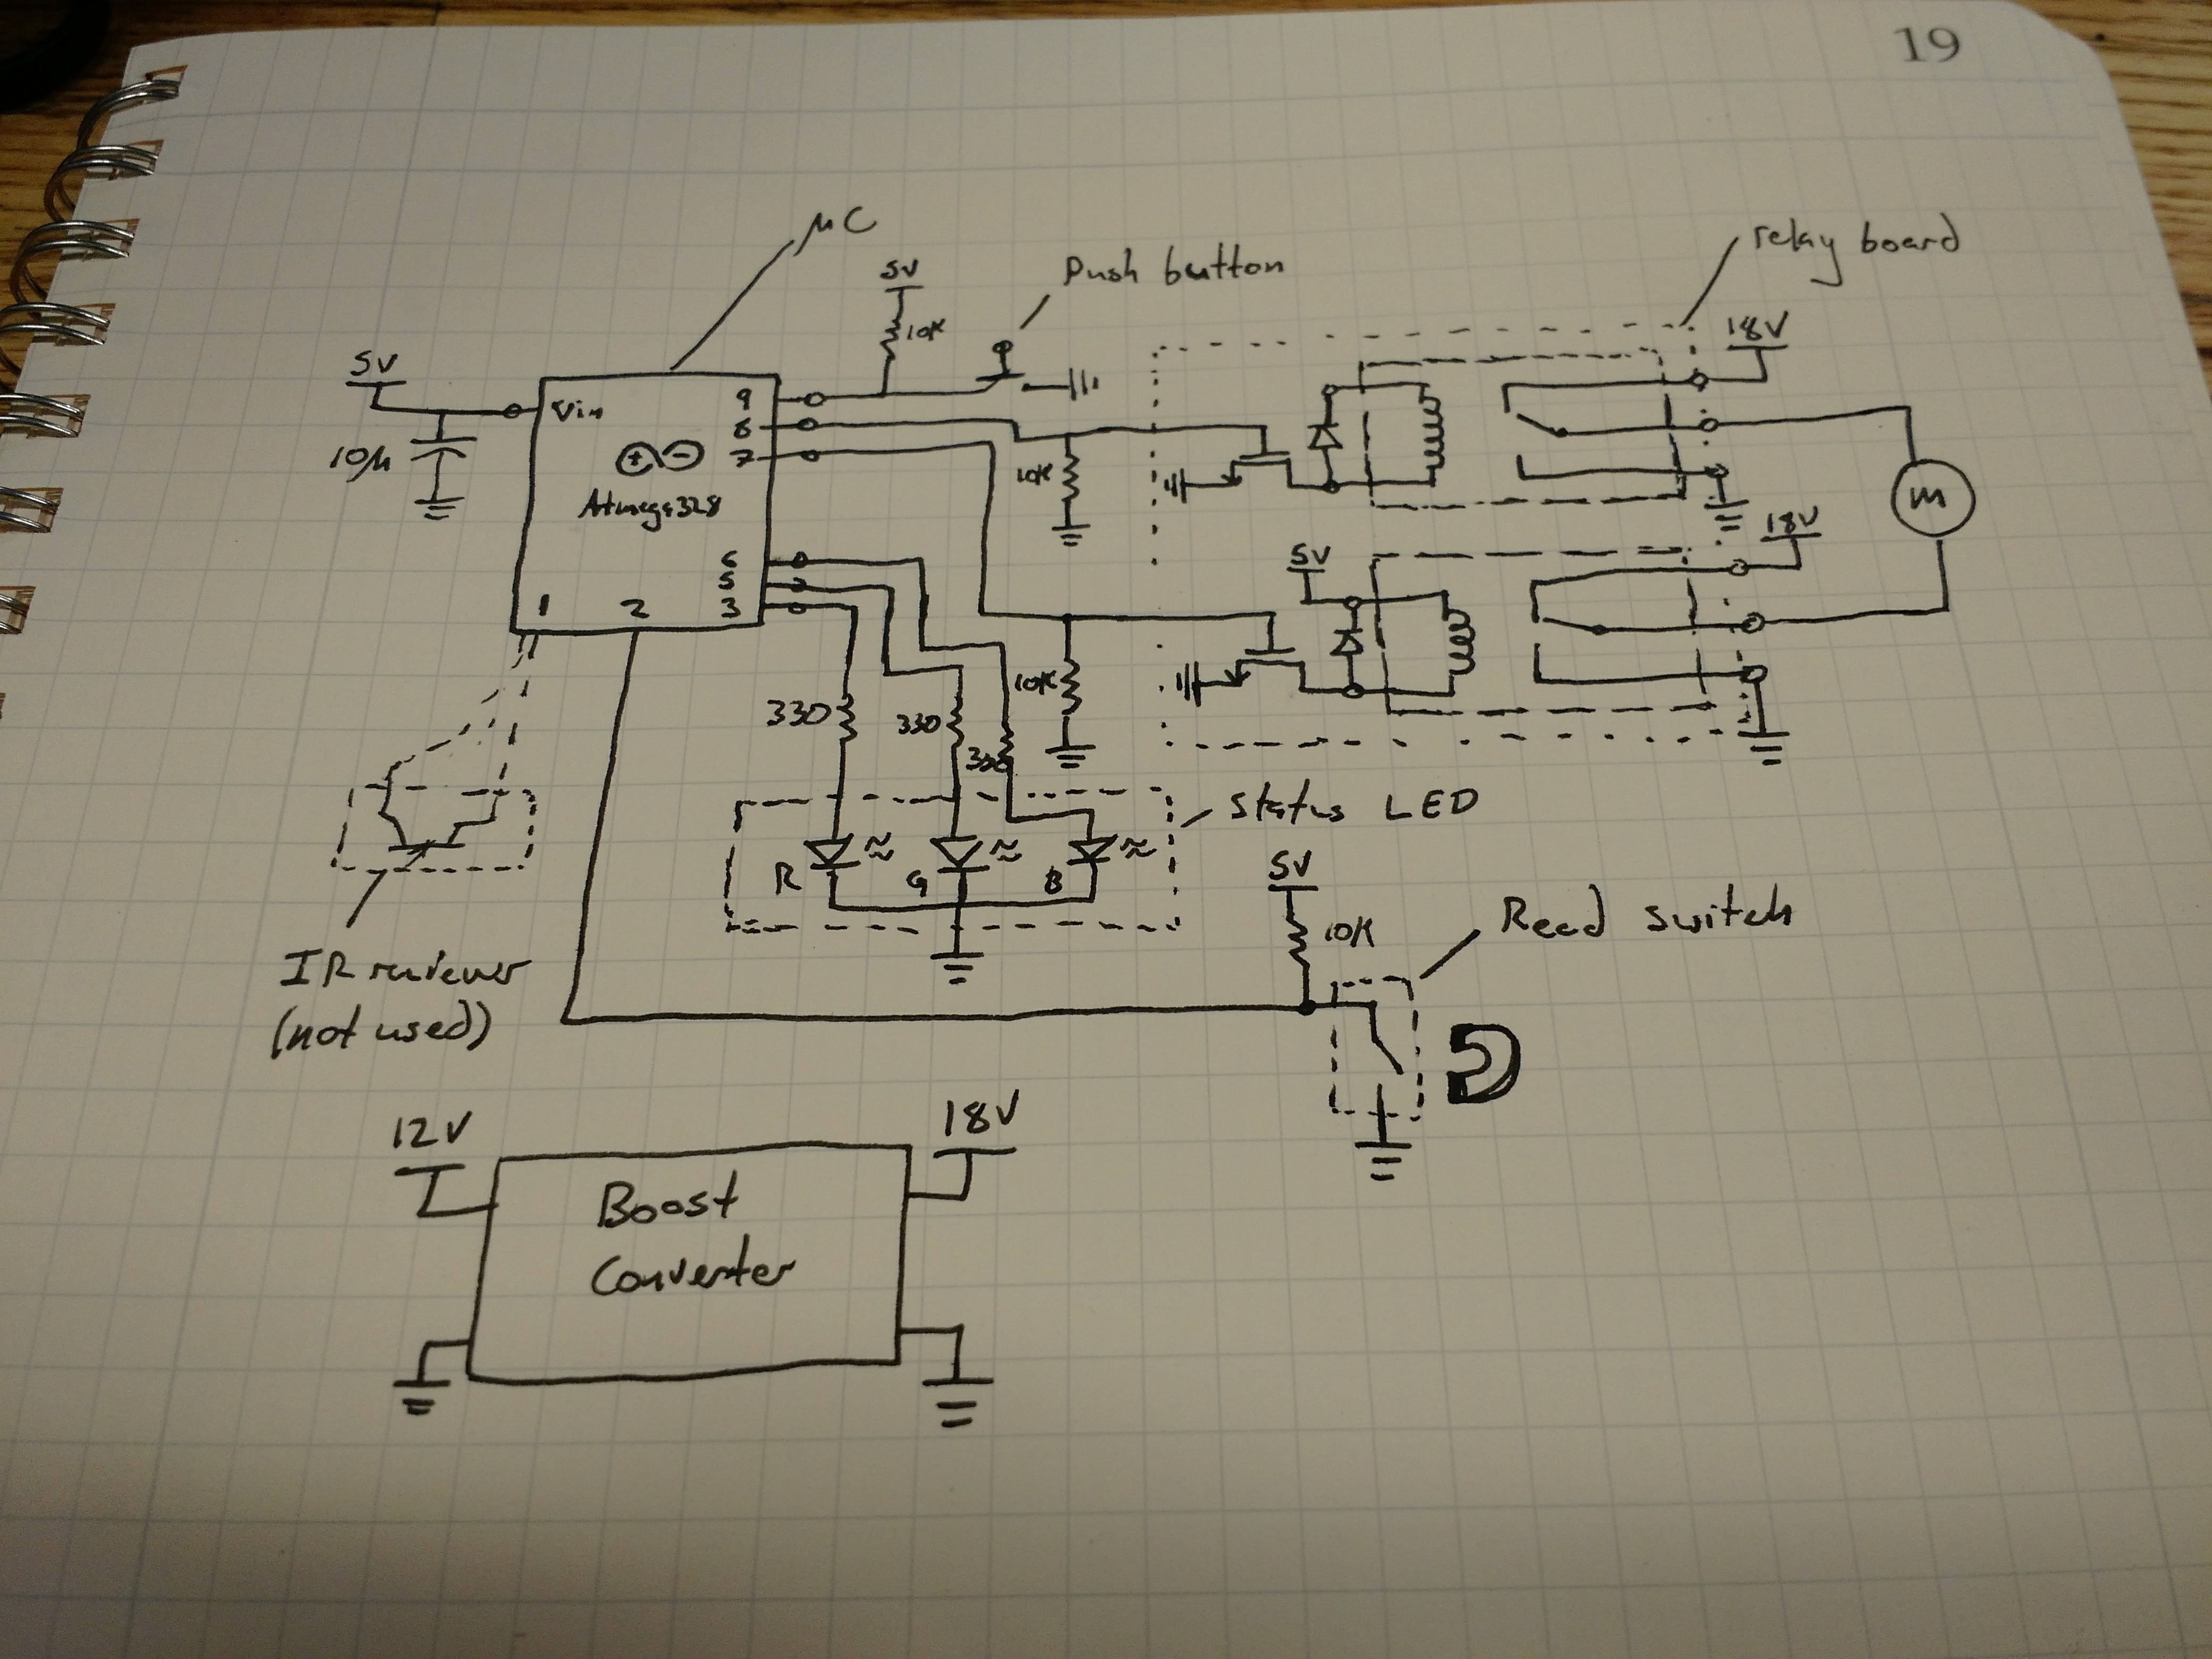 19
μC
5V
Push button
relay board
10K
18V
5V
Vin
9
8
7
10μ
+ -
Atmega328
10K
M
18V
5V
6
5
3
1
2
10K
330
330
330
Status LED
R
G
B
5V
10K
Reed switch
IR reciever
(not used)
12V
18V
Boost
Converter